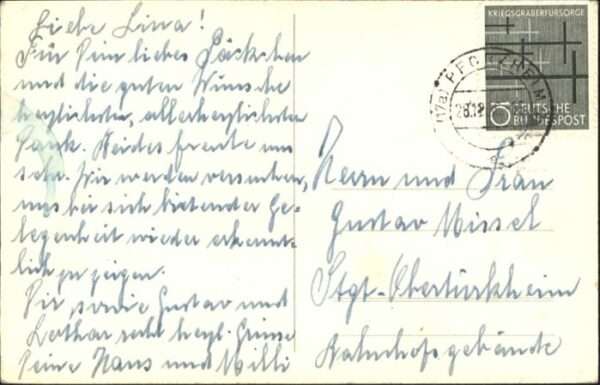 Liebe Lina!
Für Dein liebes Päckchen
und die guten Wünsche
herzlichsten, allerherzlichsten
Dank. Beides freute uns
sehr. Wir werden versuchen,
uns bei sich bietender Ge-
legenheit wieder erkennt-
lich zu zeigen.
Dir, sowie Gustav und
Lothar recht herzl. Grüsse
Deine Hans und Milli
KRIEGSGRÄBERFÜRSORGE
10 DEUTSCHE
BUNDESPOST
(17a) PFORZHEIM
Herrn und Frau
Gustav Missel
Stgt-Obertürkheim
Bahnhofsgebäude